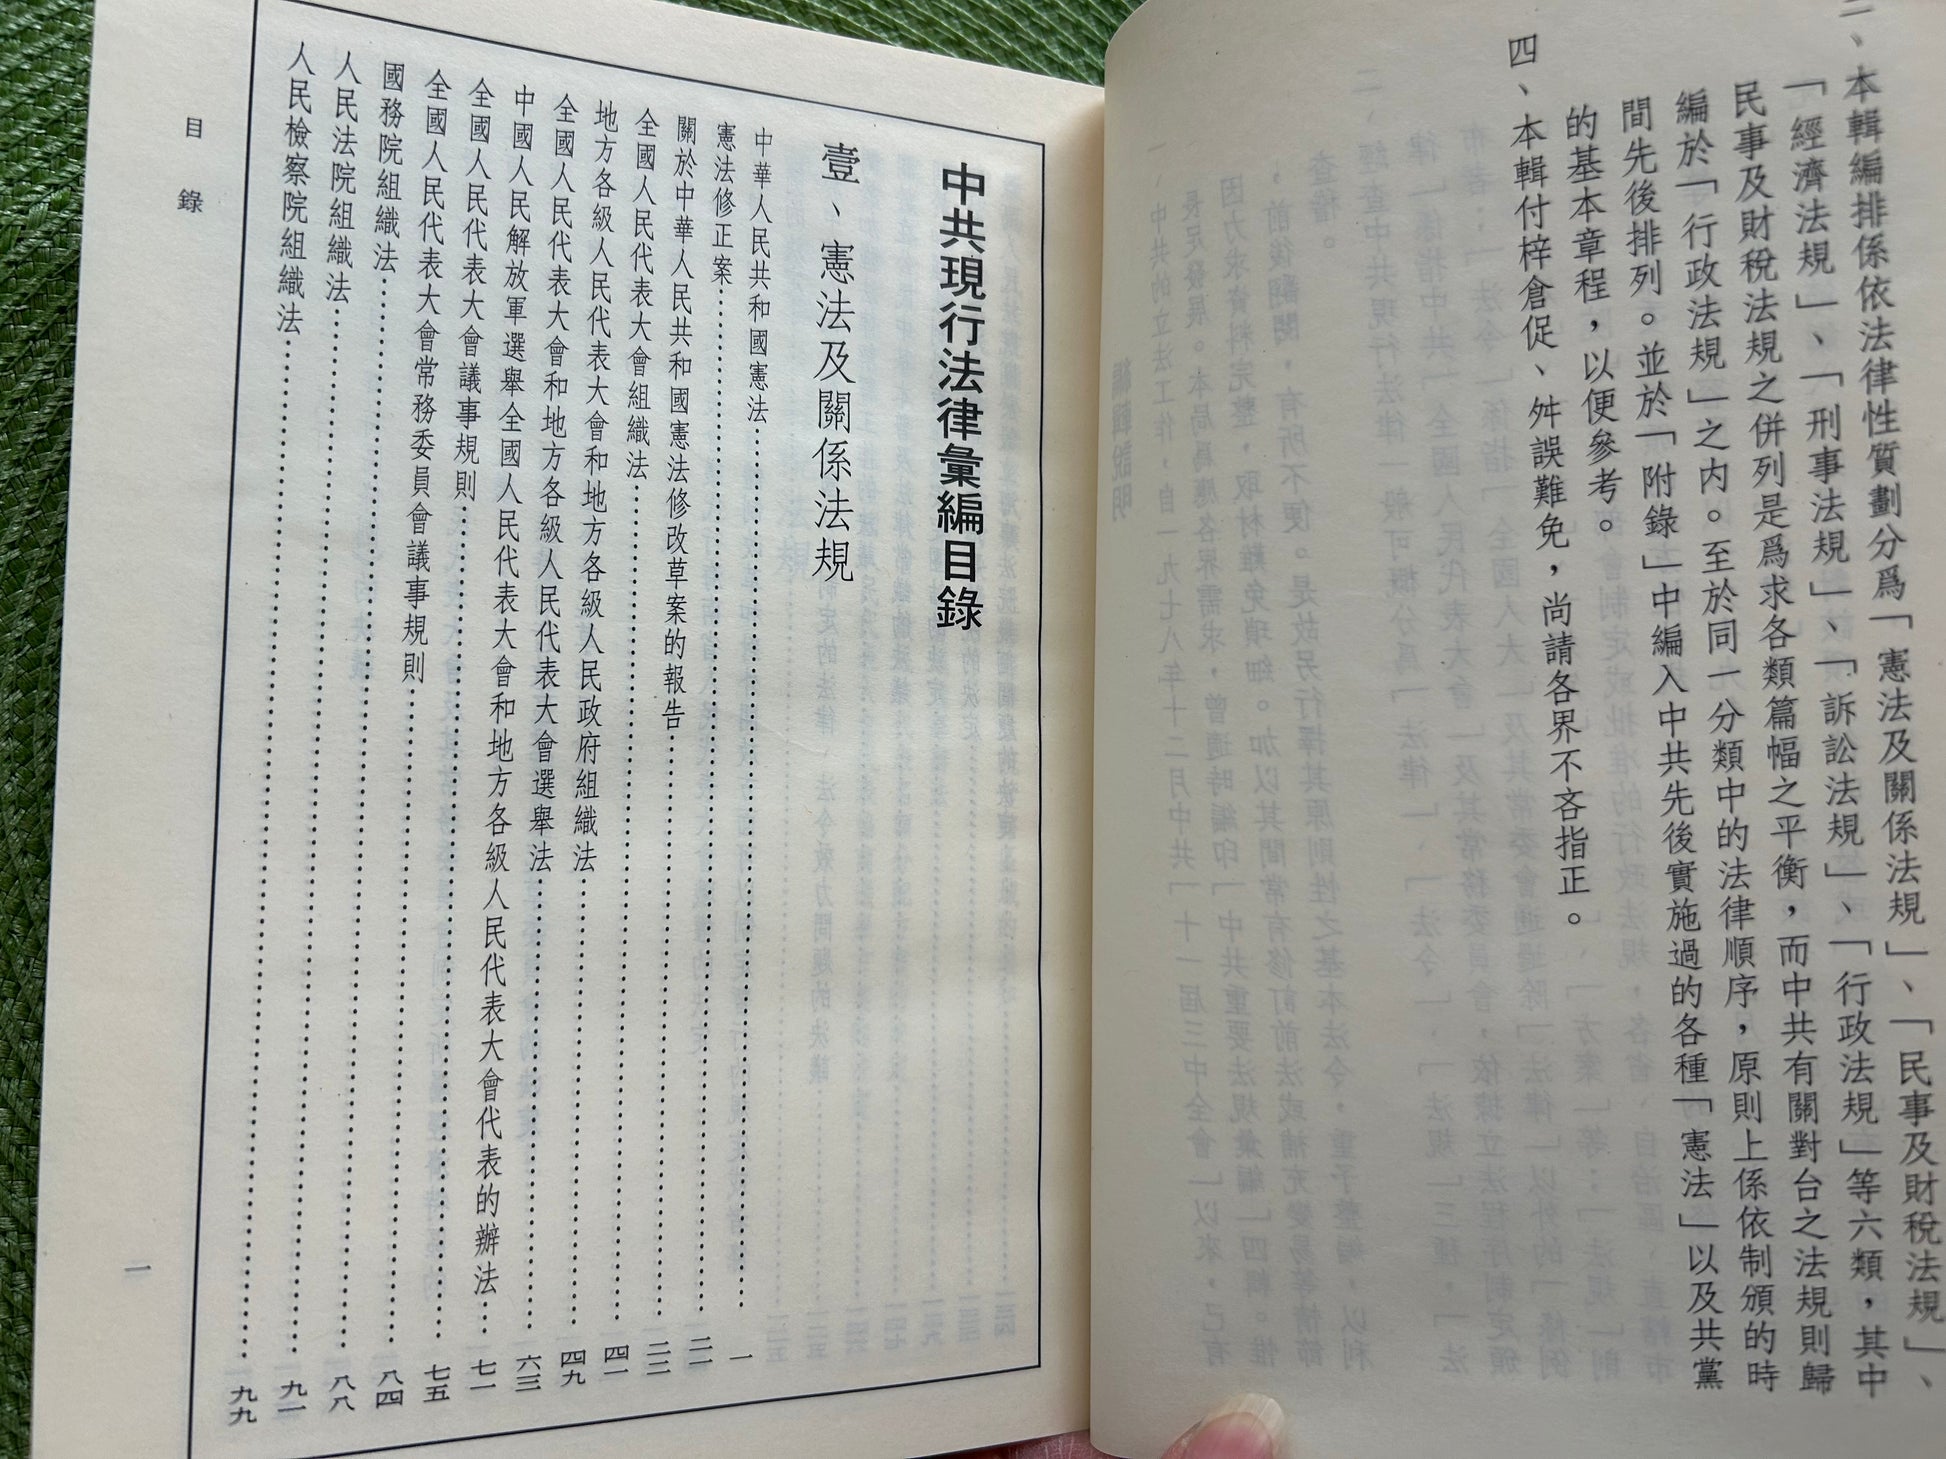 三、本輯編排係依法律性質劃分爲「憲法及關係法規」、「民事及財稅法規」、
「經濟法規」、「刑事法規」、「訴訟法規」、「行政法規」等六類，其中
民事及財稅法規之併列是爲求各類篇幅之平衡，而中共有關對台之法規則歸
編於「行政法規」之內。至於同一分類中的法律順序，原則上係依制頒的時
間先後排列。並於「附錄」中編入中共先後實施過的各種「憲法」以及共黨
的基本章程，以便參考。
四、本輯付梓倉促、舛誤難免，尚請各界不吝指正。
中共現行法律彙編目錄
壹、憲法及關係法規
中華人民共和國憲法……一
憲法修正案……二一
關於中華人民共和國憲法修改草案的報告……二二
全國人民代表大會組織法……四一
地方各級人民代表大會和地方各級人民政府組織法……四九
全國人民代表大會和地方各級人民代表大會選舉法……六三
中國人民解放軍選舉全國人民代表大會和地方各級人民代表大會代表的辦法……七一
全國人民代表大會議事規則……七五
全國人民代表大會常務委員會議事規則……八四
國務院組織法……八八
人民法院組織法……九一
人民檢察院組織法……九九
目錄
一